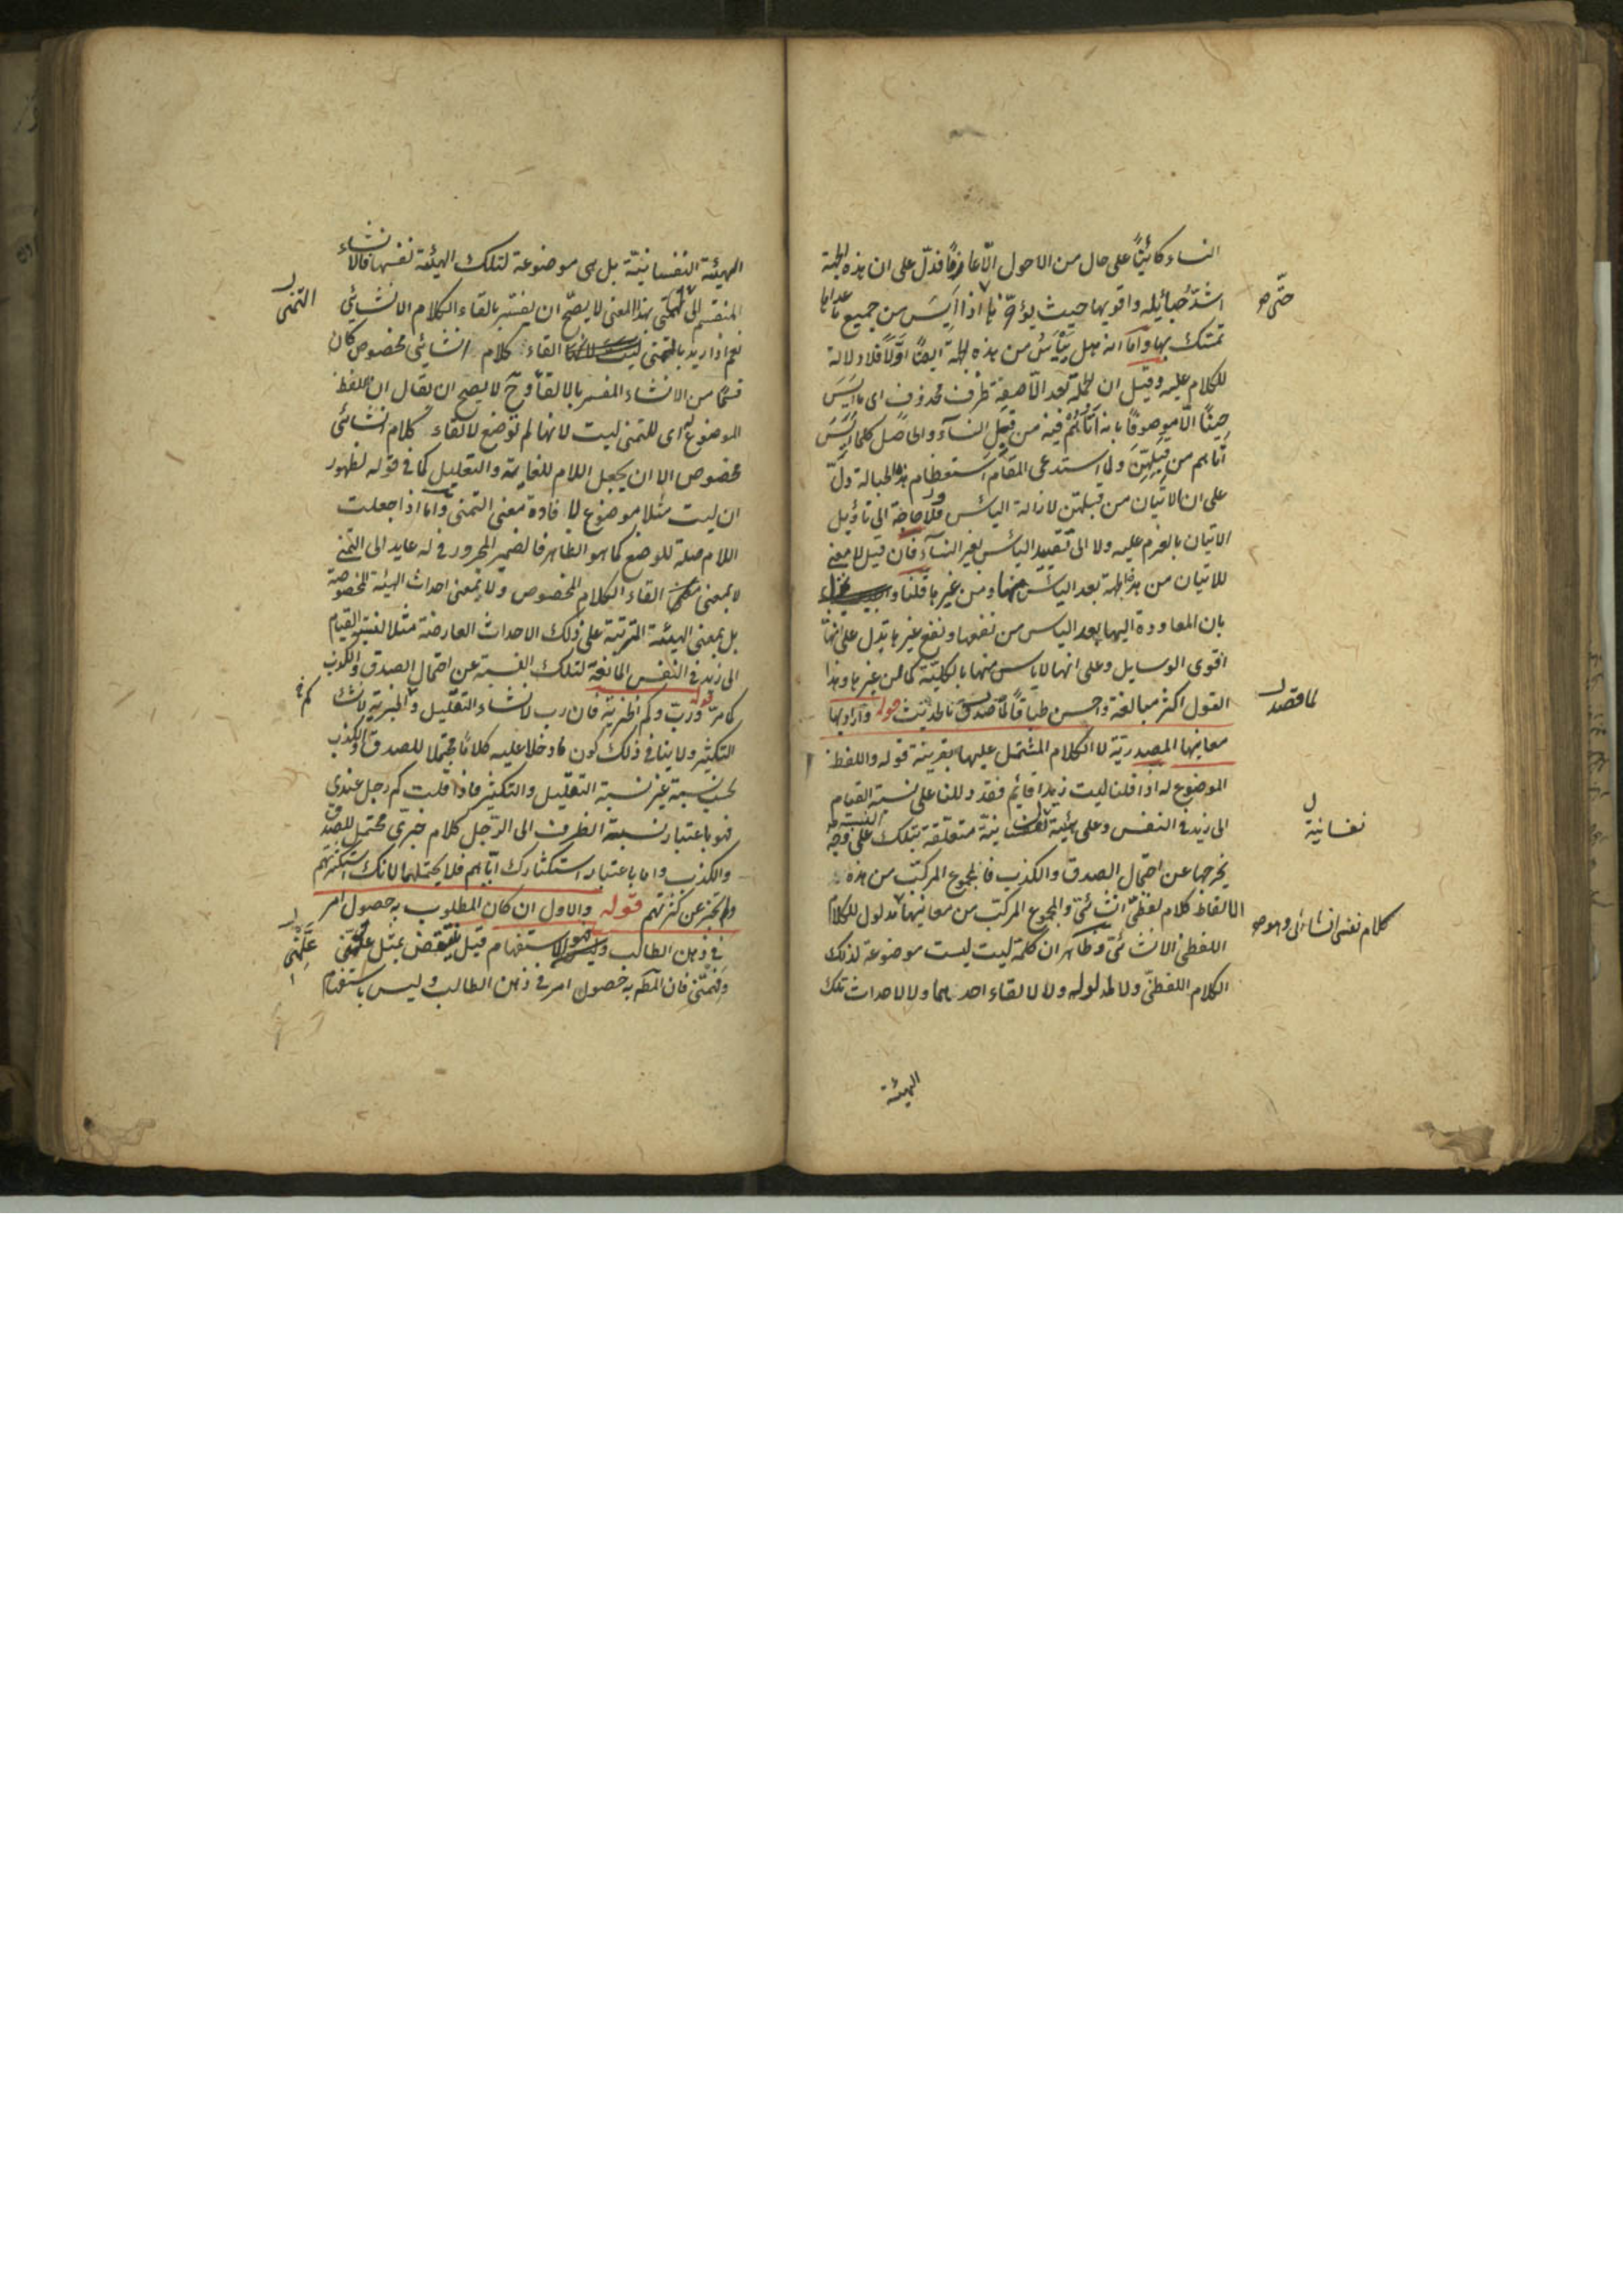 النساء كائنًا على حال من الاحوال الّا عازمًا فدلّ على ان هذه الجهة
اشدّ حبائله واقويها حيث يؤتى بها اذا ايس من جميع ما عداها
حتى
تمسّك بها وامّا انه هل ييأس من هذه الجهة ايضًا اوّلًا فلا دلالة
للكلام عليه وقيل ان الجملة بعد الّا صفة ظرف محذوف اى ما ايس
حينًا الّا موصوفًا بانه اتاهم فيه من قبل النساء والحاصل كلما ايس
اتاهم من قبلهنّ ولما استدعى المقام استعظام هذه الحبالة دلّ
على ان الاتيان من قبلهن لازالة اليأس فلا حاجة الى تأويل
الاتيان بالعزم عليه ولا الى تقييد اليأس بغير النساء فان قيل لا معنى
للاتيان من هذه الجهة بعد اليأس منها ومن غيرها قلنا
بان المعاودة اليها بعد اليأس من نفعها ونفع غيرها تدل على انها
اقوى الوسايل وعلى انها لا يأس منها بالكلية كما من غيرها وهذا
القول اكثر مبالغة واحسن طباقًا لما بالحديث قوله واراد بها
لما قصد
معانيها المصدرية لا الكلام المشتمل عليها بقرينة قوله واللفظ
الموضوع له اذا قلنا ليت زيدا قائم فقد دللنا على نسبة القيام
الى زيد في النفس وعلى هيئة نفسانية متعلقة بتلك النسبة على وجه
نفسانية
يخرجها عن احتمال الصدق والكذب فالمجموع المركب من هذه
الالفاظ كلام لفظى انشائى والمجموع المركب من معانيها مدلول للكلام
كلام نفسى انشائى وهو
اللفظى الانشائى وظاهر ان كلمة ليت ليست موضوعة لذلك
الكلام اللفظى ولا لمدلوله ولا لالقاء احدهما ولا لاحداث تلك
الهيئة
الهيئة النفسانية بل هى موضوعة لتلك الهيئة نفسها فالانشاء
المنقسم الى التمنى بهذا المعنى لا يصحّ ان يفسّر بالقاء الكلام الانشائى
التمنى
نعم اذا اريد بالتمنى القاء كلام انشائى مخصوص كان
قسمًا من الانشاء المفسر بالالقاء وح لا يصح ان يقال ان اللفظ
الموضوع له اى للتمنى ليت لانها لم توضع لالقاء كلام انشائى
مخصوص الا ان يجعل اللام للغاية والتعليل كما في قوله لظهور
ان ليت مثلا موضوع لافادة معنى التمنى واما اذا جعلت
اللام صلة للوضع كما هو الظاهر فالضمير المجرور في له عايد الى التمنى
لا بمعنى القاء الكلام المخصوص ولا بمعنى احداث الهيئة المخصوصة
بل بمعنى الهيئة المترتبة على ذلك الاحداث العارضة مثلا لنسبة القيام
الى زيد في النفس المانعة لتلك النسبة عن احتمال الصدق والكذب
كما مرّ قوله وربّ وكم الخبرية فان رب لانشاء التقليل وكم الخبرية لانشاء
كم
التكثير ولا ينافى ذلك كون ما دخلا عليه كلامًا محتملا للصدق والكذب
بحسب نسبة غير نسبة التقليل والتكثير فاذا قلت كم رجل عندى
فهو باعتبار نسبة الظرف الى الرجل كلام خبرى محتمل للصدق
والكذب واما باعتبار استكثارك اياهم فلا يحتملهما لانك استكثرتهم
ولم تخبر عن كثرتهم قوله والاول ان كان المطلوب به حصول امر
في ذهن الطالب فهو الاستفهام قيل ينتقض بمثل علّمنى
علّمنى
وفهّمنى فان المط به حصول امر في ذهن الطالب وليس باستفهام